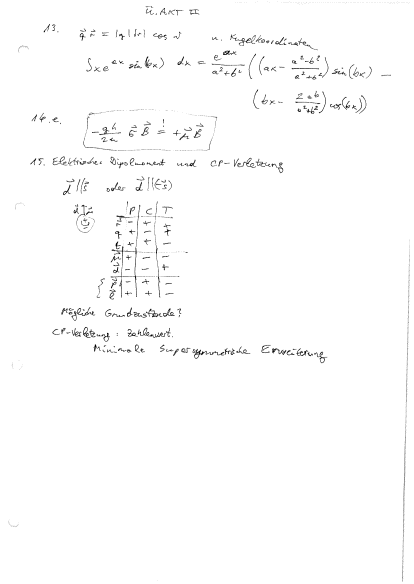 Ü. AKT II
13. q⃗ r⃗ = |q||r| cos ϑ u. Kugelkoordinaten
∫ x e^{ax} sin(bx) dx = e^{ax}/(a²+b²) ((ax − (a²−b²)/(a²+b²)) sin(bx) −
(bx − 2ab/(a²+b²)) cos(bx))
14. e.
σ⃗ B⃗ != + μ⃗ B⃗
15. Elektrisches Dipolmoment und CP-Verletzung
d⃗ || s⃗ oder d⃗ || (−s⃗)
P C T
r⃗ − + +
q + − +
t + + −
μ⃗ + − −
d⃗ − − +
+ + −
Mögliche Grundzustände?
CP-Verletzung: Zahlenwert.
Minimale Supersymmetrische Erweiterung